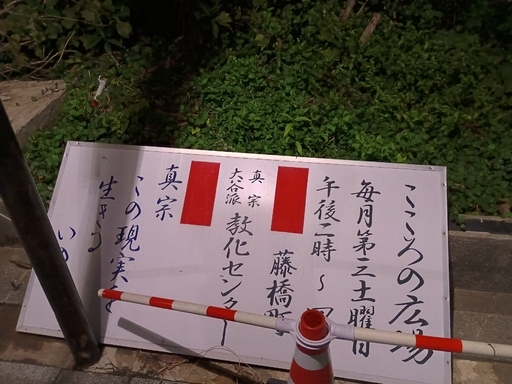 こころの広場
毎月第三土曜日
午後二時〜
藤橋町
真宗
大谷派
教化センター
真宗
この現実を
生きる
い